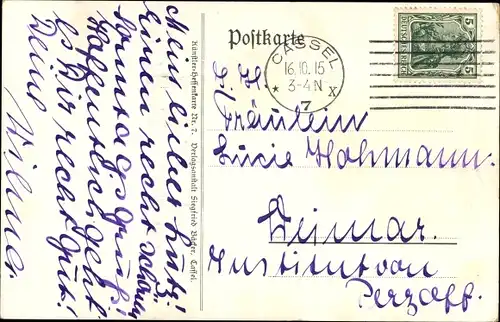 Mein lieber Putzi!
Einen recht schön
Sonntagsgruß!
Hoffentlich geht
es Dir recht gut!
Deine
Künstler-Hessenkarte Nr. 7. Verlagsanstalt Siegfried Cassel.
Postkarte
CASSEL
16.10.15
3-4 N
* 7 X
5 DEUTSCHES REICH 5
Fräulein
Lucie Hohmann.
Weimar.
Institut von